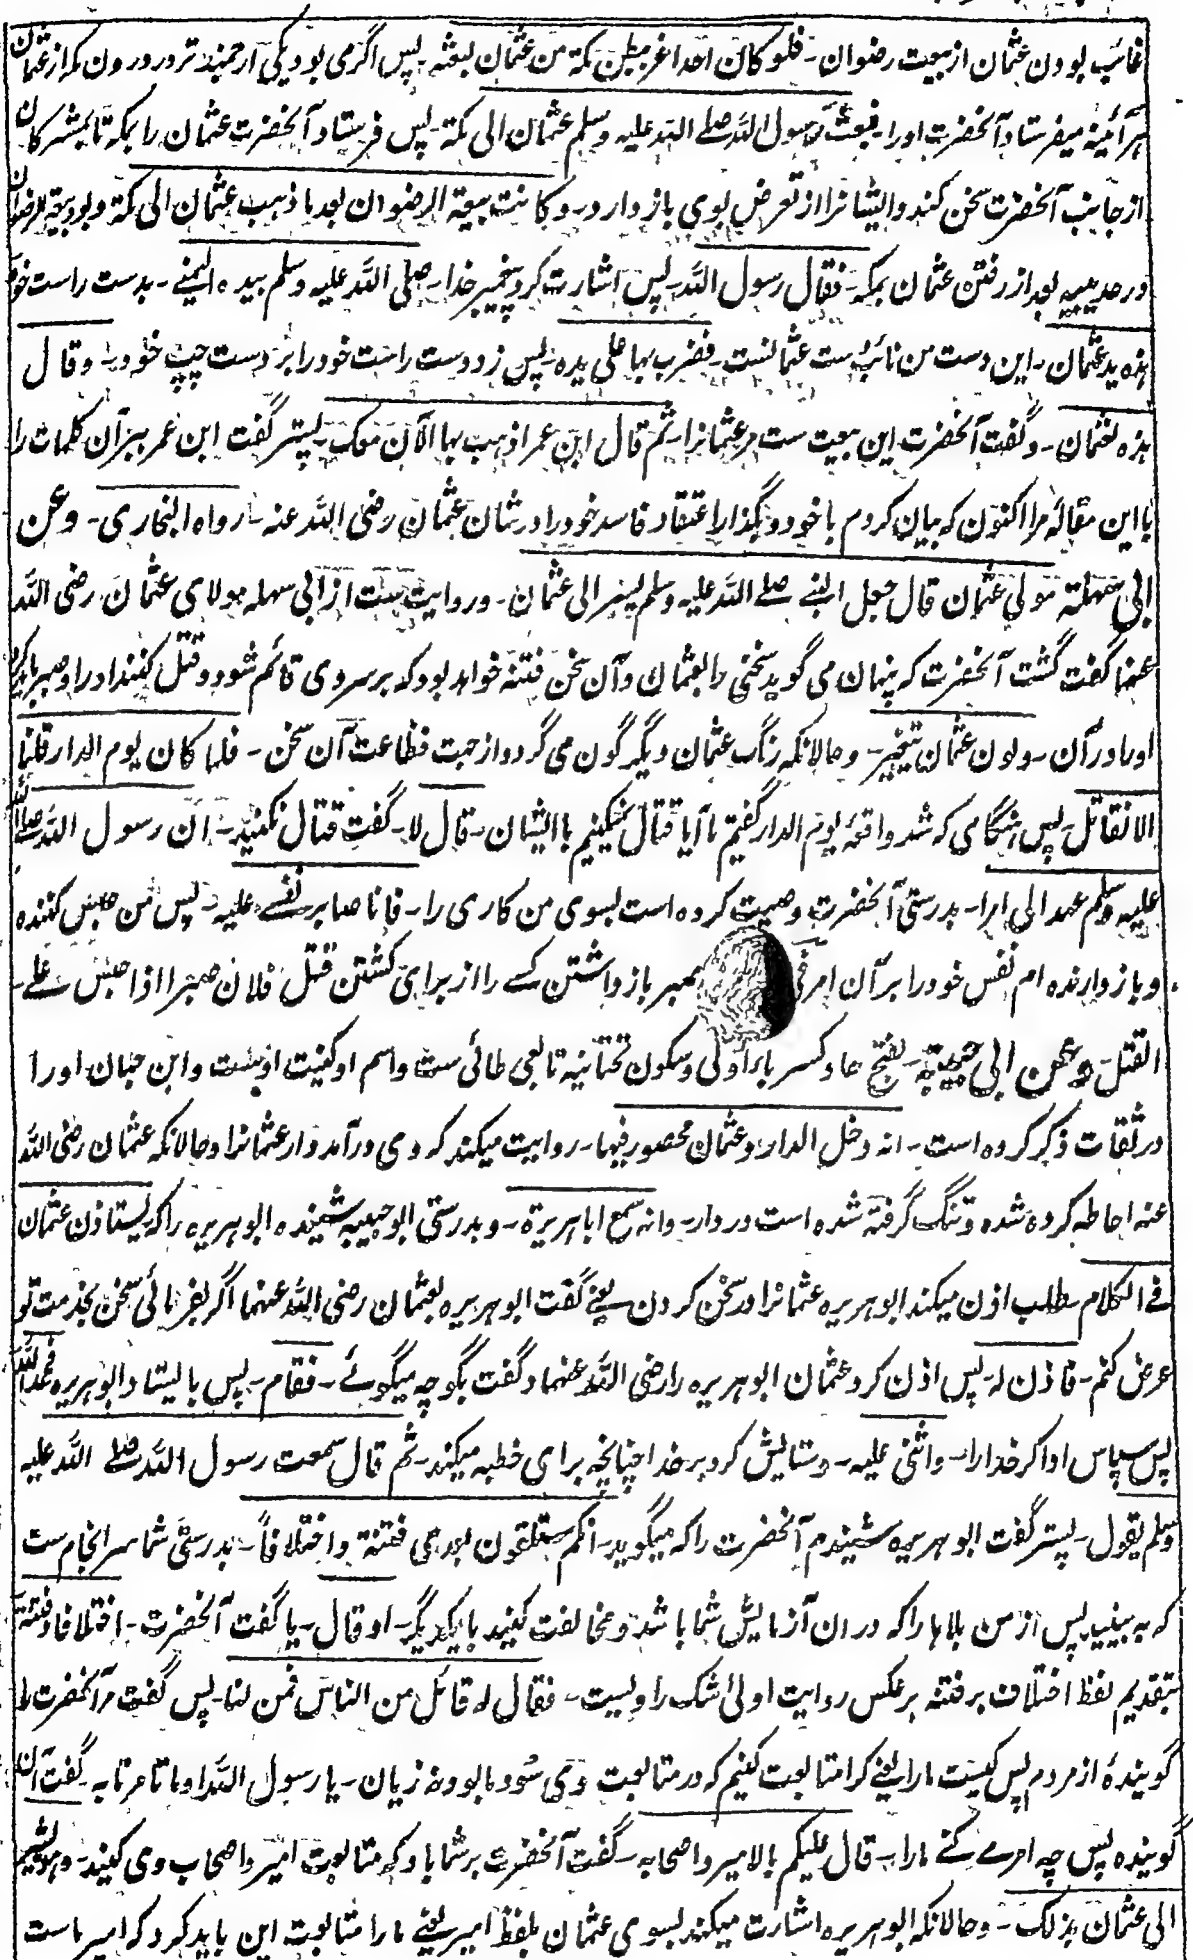 غائب بودن عثمان از بیعت رضوان - فلو کان احد اعز ببطن مکة من عثمان لبعثه پس اگر می بود یکی ارجمند تر در درون مکه از عثمان
هر آئینه میفرستاد آنحضرت اورا - فبعث رسول الله صلے الله علیه وسلم عثمان الی مکة - پس فرستاد آنحضرت عثمان را بمکه تا بمشرکان
از جانب آنحضرت سخن کند و ایشانرا از تعرض بوی باز دارد - و کانت بیعة الرضوان بعد ما ذهب عثمان الی مکة و بود بیعة الرضوان
در حدیبیه بعد از رفتن عثمان بمکه - فقال رسول الله - پس اشارت کرد پیغمبر خدا - صلی الله علیه وسلم بیده الیمنے - بدست راست خود
هذه ید عثمان - این دست من نائب دست عثمانست - فضرب بها علی یده - پس زد دست راست خود را بر دست چپ خود - و قال
هذه لعثمان - و گفت آنحضرت این بیعت ست مر عثمانرا - ثم قال ابن عمر اذهب بها الآن معک - پستر گفت ابن عمر ببر آن کلمات را
با این مقالهٔ مرا اکنون که بیان کردم با خود و بگذار اعتقاد فاسد خود را در شان عثمان رضی الله عنه - رواه البخاری - و عن
ابی سهلة مولی عثمان قال جعل النبے صلے الله علیه وسلم یسر الی عثمان - و روایت ست از ابی سهله مولای عثمان رضی الله
عنها گفت گشت آنحضرت که پنهان می گوید سخنی را بعثمان و آن سخن فتنه خواهد بود که بر سر وی قائم شود و قتل کنند او را و صبر باید کرد
او را در آن - و لون عثمان یتغیر - و حالانکه رنگ عثمان دیگر گون می گردد از جهت فظاعت آن سخن - فلما کان یوم الدار قلنا
الا نقاتل - پس هنگامی که شد واقعهٔ یوم الدار گفتیم ما آیا قتال نمیکنیم با ایشان - قال لا - گفت قتال نکنید - ان رسول الله صلے الله
علیه وسلم عهد الی امرا - بدرستی آنحضرت وصیت کرده است بسوی من کاری را - فانا صابر نفسے علیه - پس من حبس کننده
و باز دارنده ام نفس خود را بر آن امر باز داشتن کسے را از برای کشتن قتل فلان صبرا اذا حبس علے
القتل - و عن ابی حبیبة - بفتح حا و کسر باء اولی و سکون تحتانیه تابعی طائی ست و اسم او کنیت اوست و ابن حبان اورا
در ثقات ذکر کرده است - انه دخل الدار و عثمان محصور فیها - روایت میکند که وی در آمد دار عثمانرا و حالانکه عثمان رضی الله
عنه احاطه کرده شده و تنگ گرفته شده است در دار - و انه سمع ابا هریرة - و بدرستی ابو حبیبه شنیده ابو هریره را که یستاذن عثمان
فے الکلام - طلب اذن میکند ابو هریره عثمانرا در سخن کردن یعنے گفت ابو هریره بعثمان رضی الله عنهما اگر بفرمائی سخن بخدمت تو
عرض کنم - فاذن له - پس اذن کرد عثمان ابو هریره را رضی الله عنهما و گفت بگو چه میگوئے - فقام - پس بایستاد ابو هریره فحمد الله
پس سپاس ادا کرد خدا را - و اثنی علیه - و ستایش کرد بر خدا چنانچه برای خطبه میکند - ثم قال سمعت رسول الله صلے الله علیه
وسلم یقول - پستر گفت ابو هریره شنیدم آنحضرت را که میگوید - انکم ستلقون بعدی فتنة و اختلافاً - بدرستی شما سرانجام ست
که به بینید پس از من بلاها را که در ان آزمایش شما باشد و مخالفت کنید با یکدیگر - او قال - یا گفت آنحضرت - اختلافا و فتنة
بتقدیم لفظ اختلاف بر فتنه بر عکس روایت اولی شک راویست - فقال له قائل من الناس فمن لنا - پس گفت مر آنحضرت را
گوینده از مردم پس کیست ما را یعنے کرا متابعت کنیم که در متابعت وی سود ما بود نه زیان - یا رسول الله او ما تامرنا به - گفت آن
گوینده پس چه امر مے کنے ما را - قال علیکم بالامیر و اصحابه - گفت آنحضرت بر شما باد که متابعت امیر و اصحاب وی کنید - و هو یشیر
الی عثمان بذلک - و حالانکه ابو هریره اشارت میکند بسوی عثمان بلفظ امیر یعنے ما را متابعت این باید کرد که امیر ماست